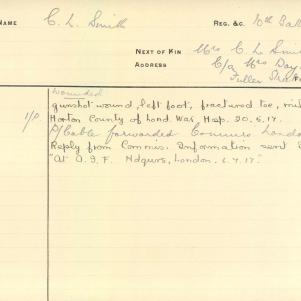 NAME C. L. Smith REG. &C. 10th Batt
NEXT OF KIN Mrs C. L. Smi
ADDRESS C/a Mrs Day
Fuller Str
wounded
gunshot wound, left foot, fractured toe, mil
1/0 Horton County of Lond. War Hosp. 20.5.17.
P/Cable forwarded Commrs London
Reply from Commis. Information sent
"At A.I.F. Hdqurs, London. 6.7.17."